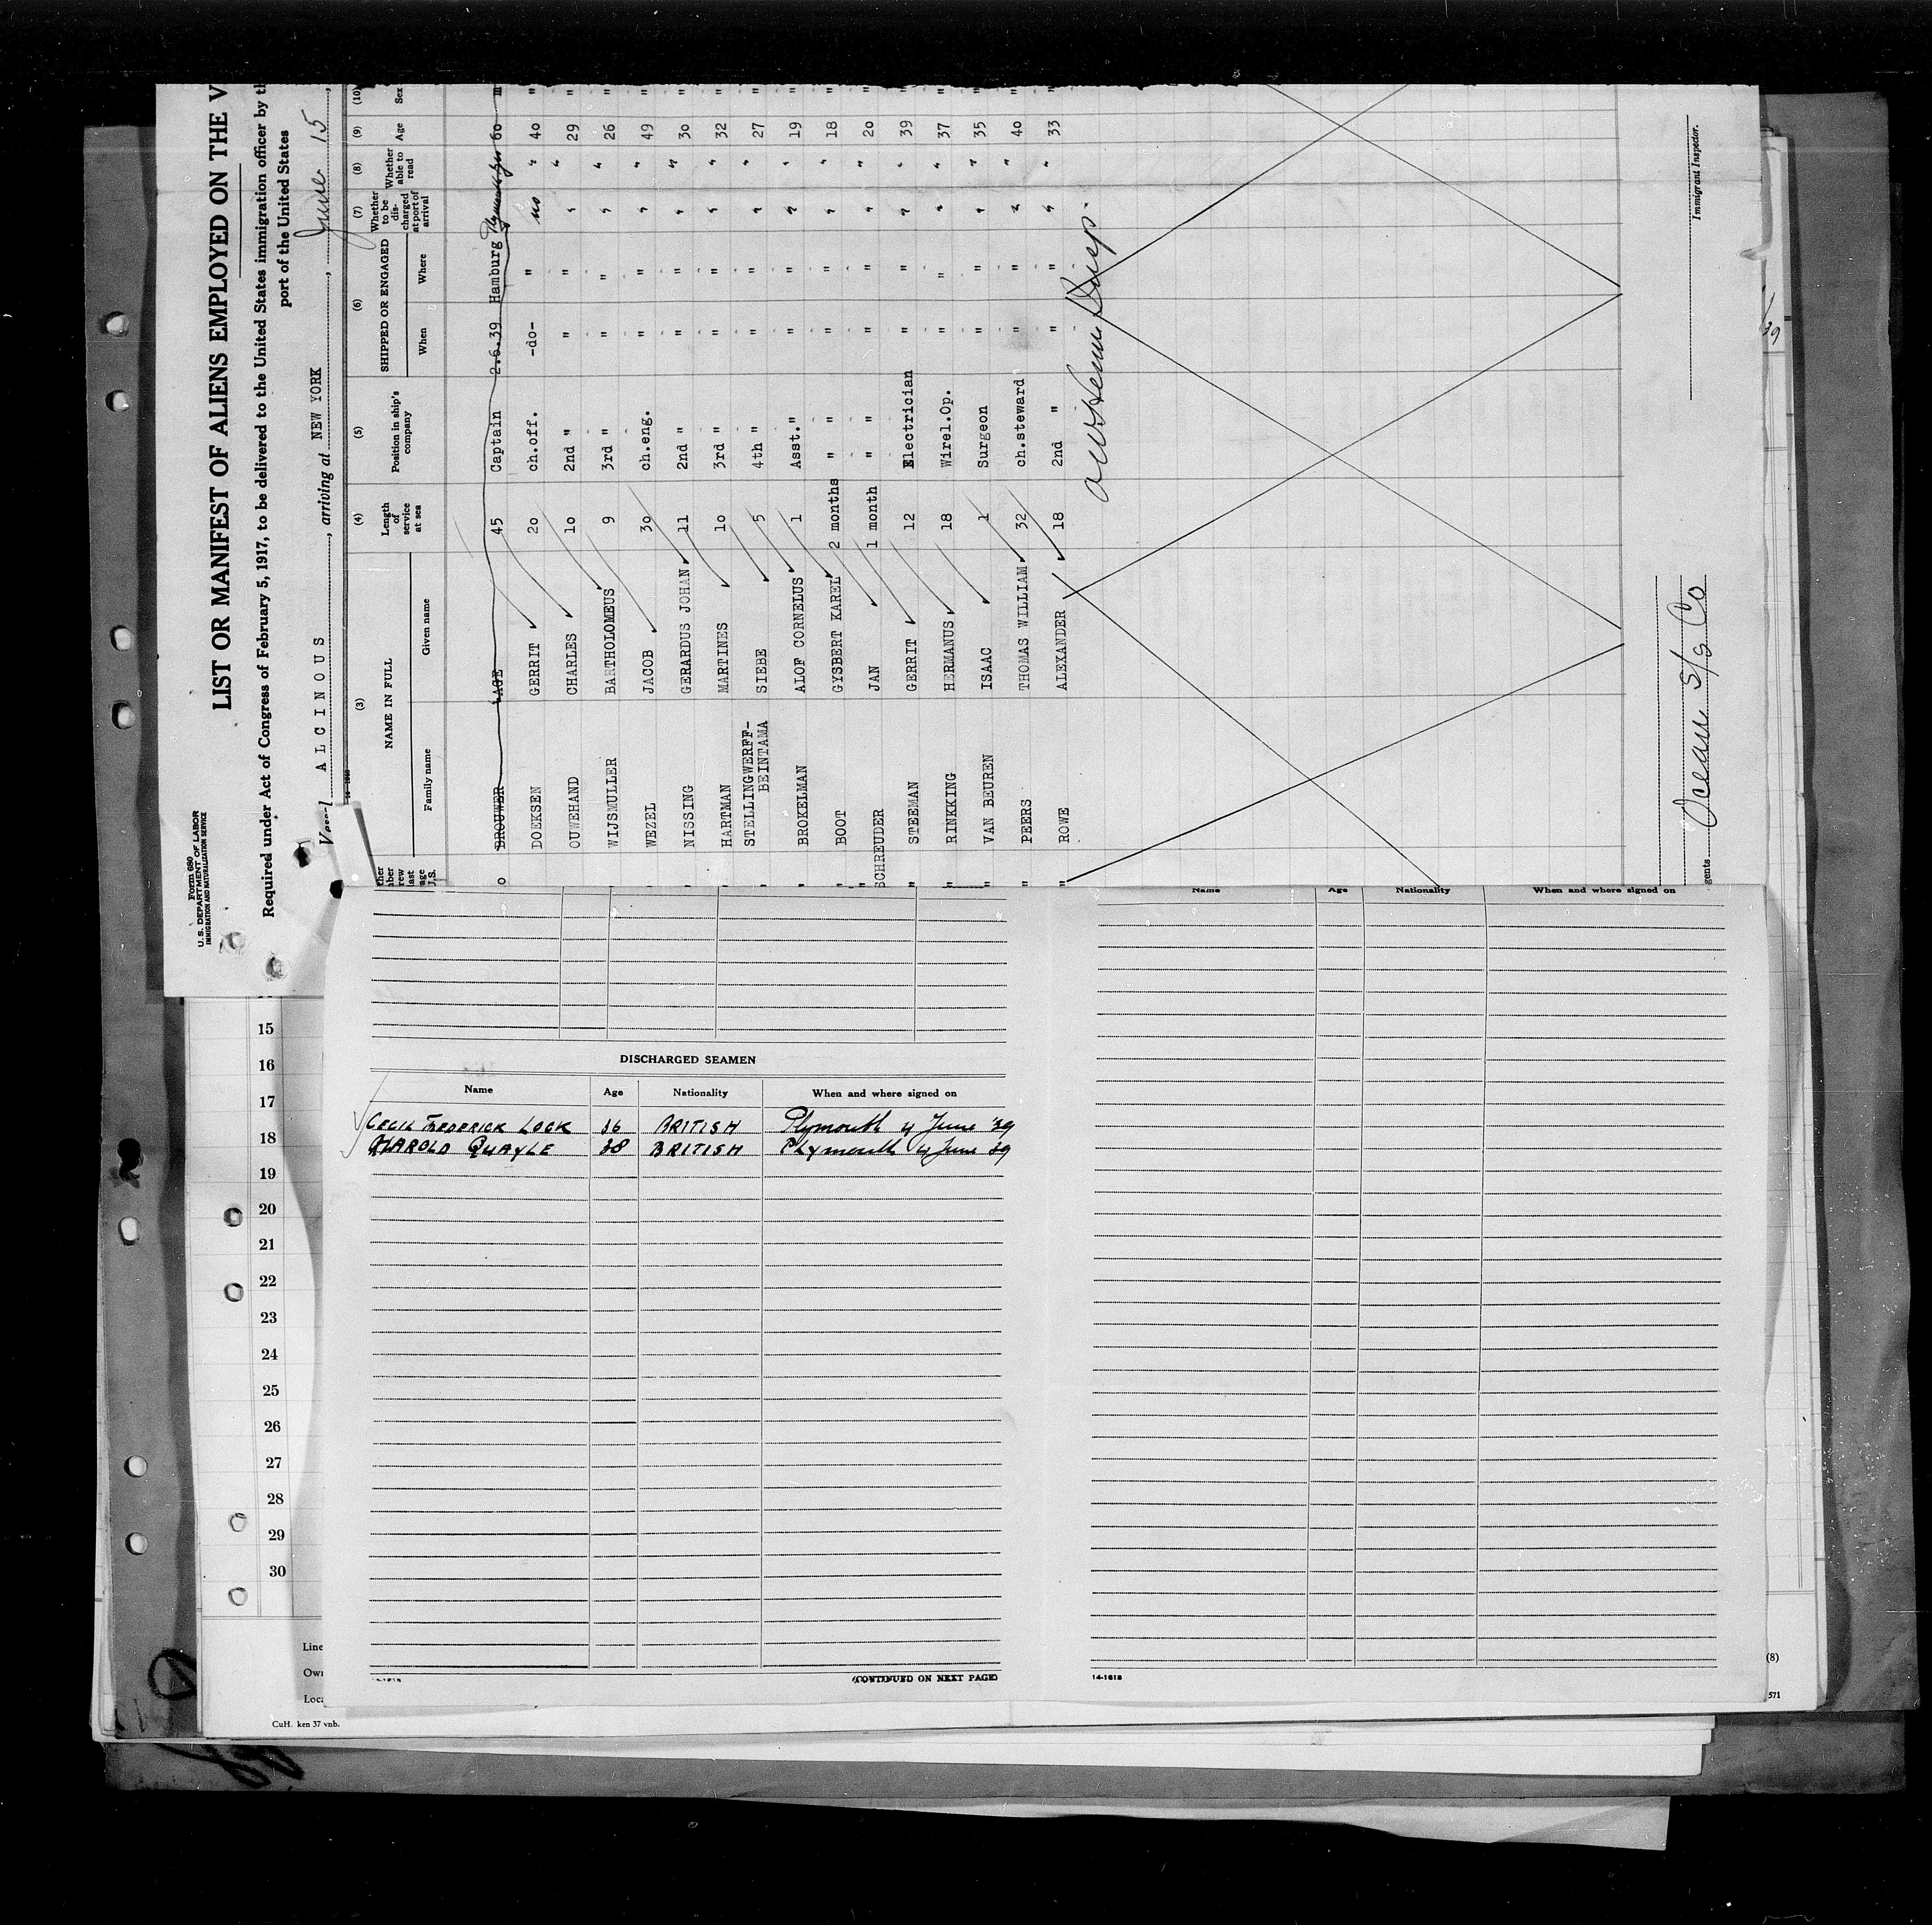 Form 680
U. S. DEPARTMENT OF LABOR
IMMIGRATION AND NATURALIZATION SERVICE
LIST OR MANIFEST OF ALIENS EMPLOYED ON THE V
Required under Act of Congress of February 5, 1917, to be delivered to the United States immigration officer by th
port of the United States
Vessel ALCINOUS, arriving at NEW YORK, June 15,
(3) (4) (5) (6) (7) (8) (9) (10)
NAME IN FULL Length of service at sea Position in ship's company SHIPPED OR ENGAGED Whether to be discharged at port of arrival Whether able to read Age Sex
Family name Given name When Where
BROUWER AGE 45 Captain 2.6.39 Hamburg 60 m
DOEKSEN GERRIT 20 ch.off. -do- " no " 40 "
OUWEHAND CHARLES 10 2nd " " " " " 29 "
WIJSMULLER BARTHOLOMEUS 9 3rd " " " " " 26 "
WEZEL JACOB 30 ch.eng. " " " " 49 "
NISSING GERARDUS JOHAN 11 2nd " " " " " 30 "
HARTMAN MARTINES 10 3rd " " " " " 32 "
STELLINGWERFF-
BEINTAMA SIEBE 5 4th " " " " " 27 "
BROKELMAN ALOF CORNELUS 1 Asst." " " " " 19 "
BOOT GYSBERT KAREL 2 months " " " " " " 18 "
SCHREUDER JAN 1 month " " " " " " 20 "
STEEMAN GERRIT 12 Electrician " " " " 39 "
RINKKING HERMANUS 18 Wirel.Op. " " " " 37 "
VAN BEUREN ISAAC 1 Surgeon " " " " 35 "
PEERS THOMAS WILLIAM 32 ch.steward " " " " 40 "
ROWE ALEXANDER 18 2nd " " " " " 33 "
Ocean S/S Co
Immigrant Inspector.
gents
Name Age Nationality When and where signed on
DISCHARGED SEAMEN
Name Age Nationality When and where signed on
CECIL FREDERICK LOCK 36 BRITISH Plymouth 4 June '39
HAROLD QUAYLE 38 BRITISH Plymouth 4 June 39
(CONTINUED ON NEXT PAGE)
14-1618
15
16
17
18
19
20
21
22
23
24
25
26
27
28
29
30
Line
Own
Loca
CuH. ken 37 vnb.
(8)
571
39